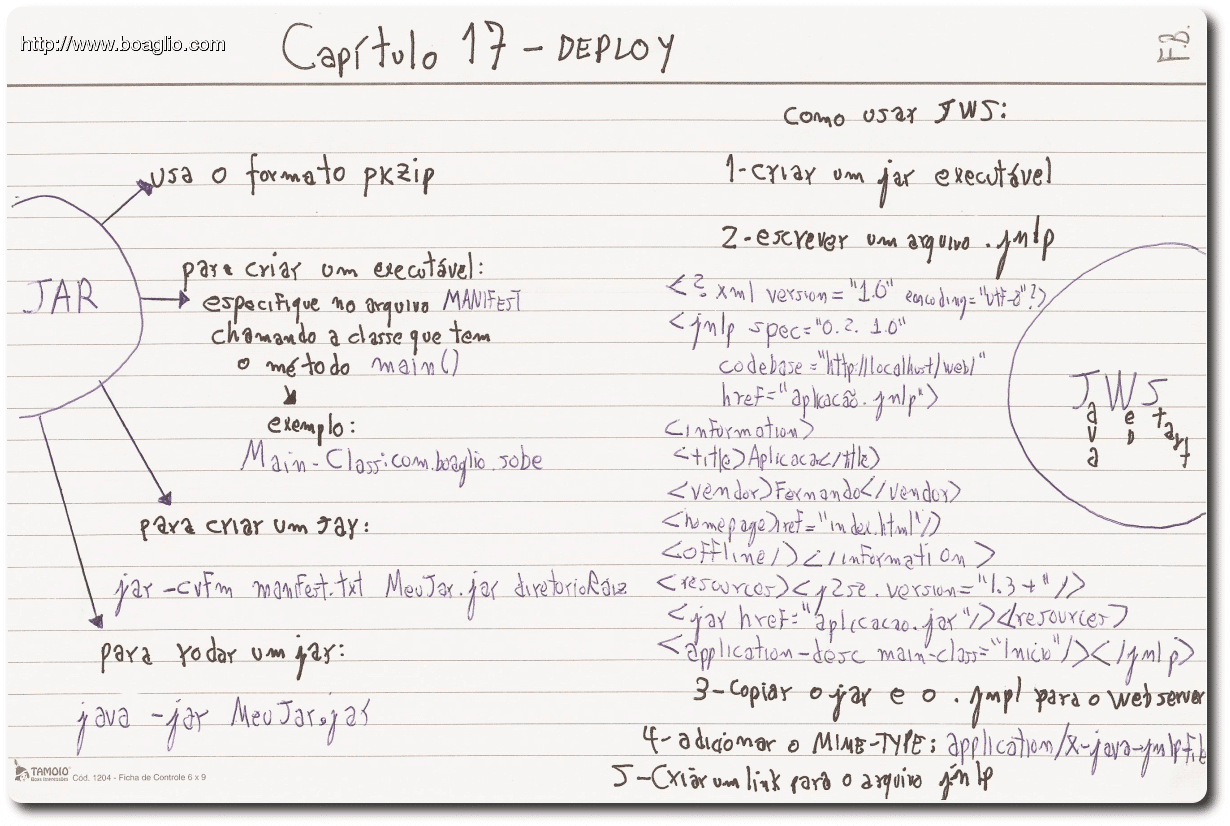 http://www.boaglio.com
Capítulo 17 - DEPLOY
F.B.
JAR
usa o formato pkzip
para criar um executável:
especifique no arquivo MANIFEST
chamando a classe que tem
o método main()
exemplo:
Main-Class:com.boaglio.sobe
para criar um Jar:
jar -cvfm manifest.txt MeuJar.jar diretorioRaiz
para rodar um jar:
java -jar MeuJar.jar
Como usar JWS:
1-criar um jar executável
2-escrever um arquivo .jnlp
<?xml version="1.0" encoding="utf-8"?>
<jnlp spec="0.2. 1.0"
codebase="http://localhost/web/"
href="aplicacão.jnlp">
<information>
<title>Aplicacao</title>
<vendor>Fernando</vendor>
<homepage href="index.html"/>
<offline/></information>
<resources><j2se.version="1.3+"/>
<jar href="aplicacao.jar"/></resources>
<application-desc main-class="Inicio"/></jnlp>
3-Copiar o jar e o .jnpl para o webserver
4-adicionar o MIME-TYPE: application/x-java-jnlp-file
5-Criar um link para o arquivo jnlp
JWS
Java
Web
Start
TAMOIO
Cód. 1204 - Ficha de Controle 6 x 9